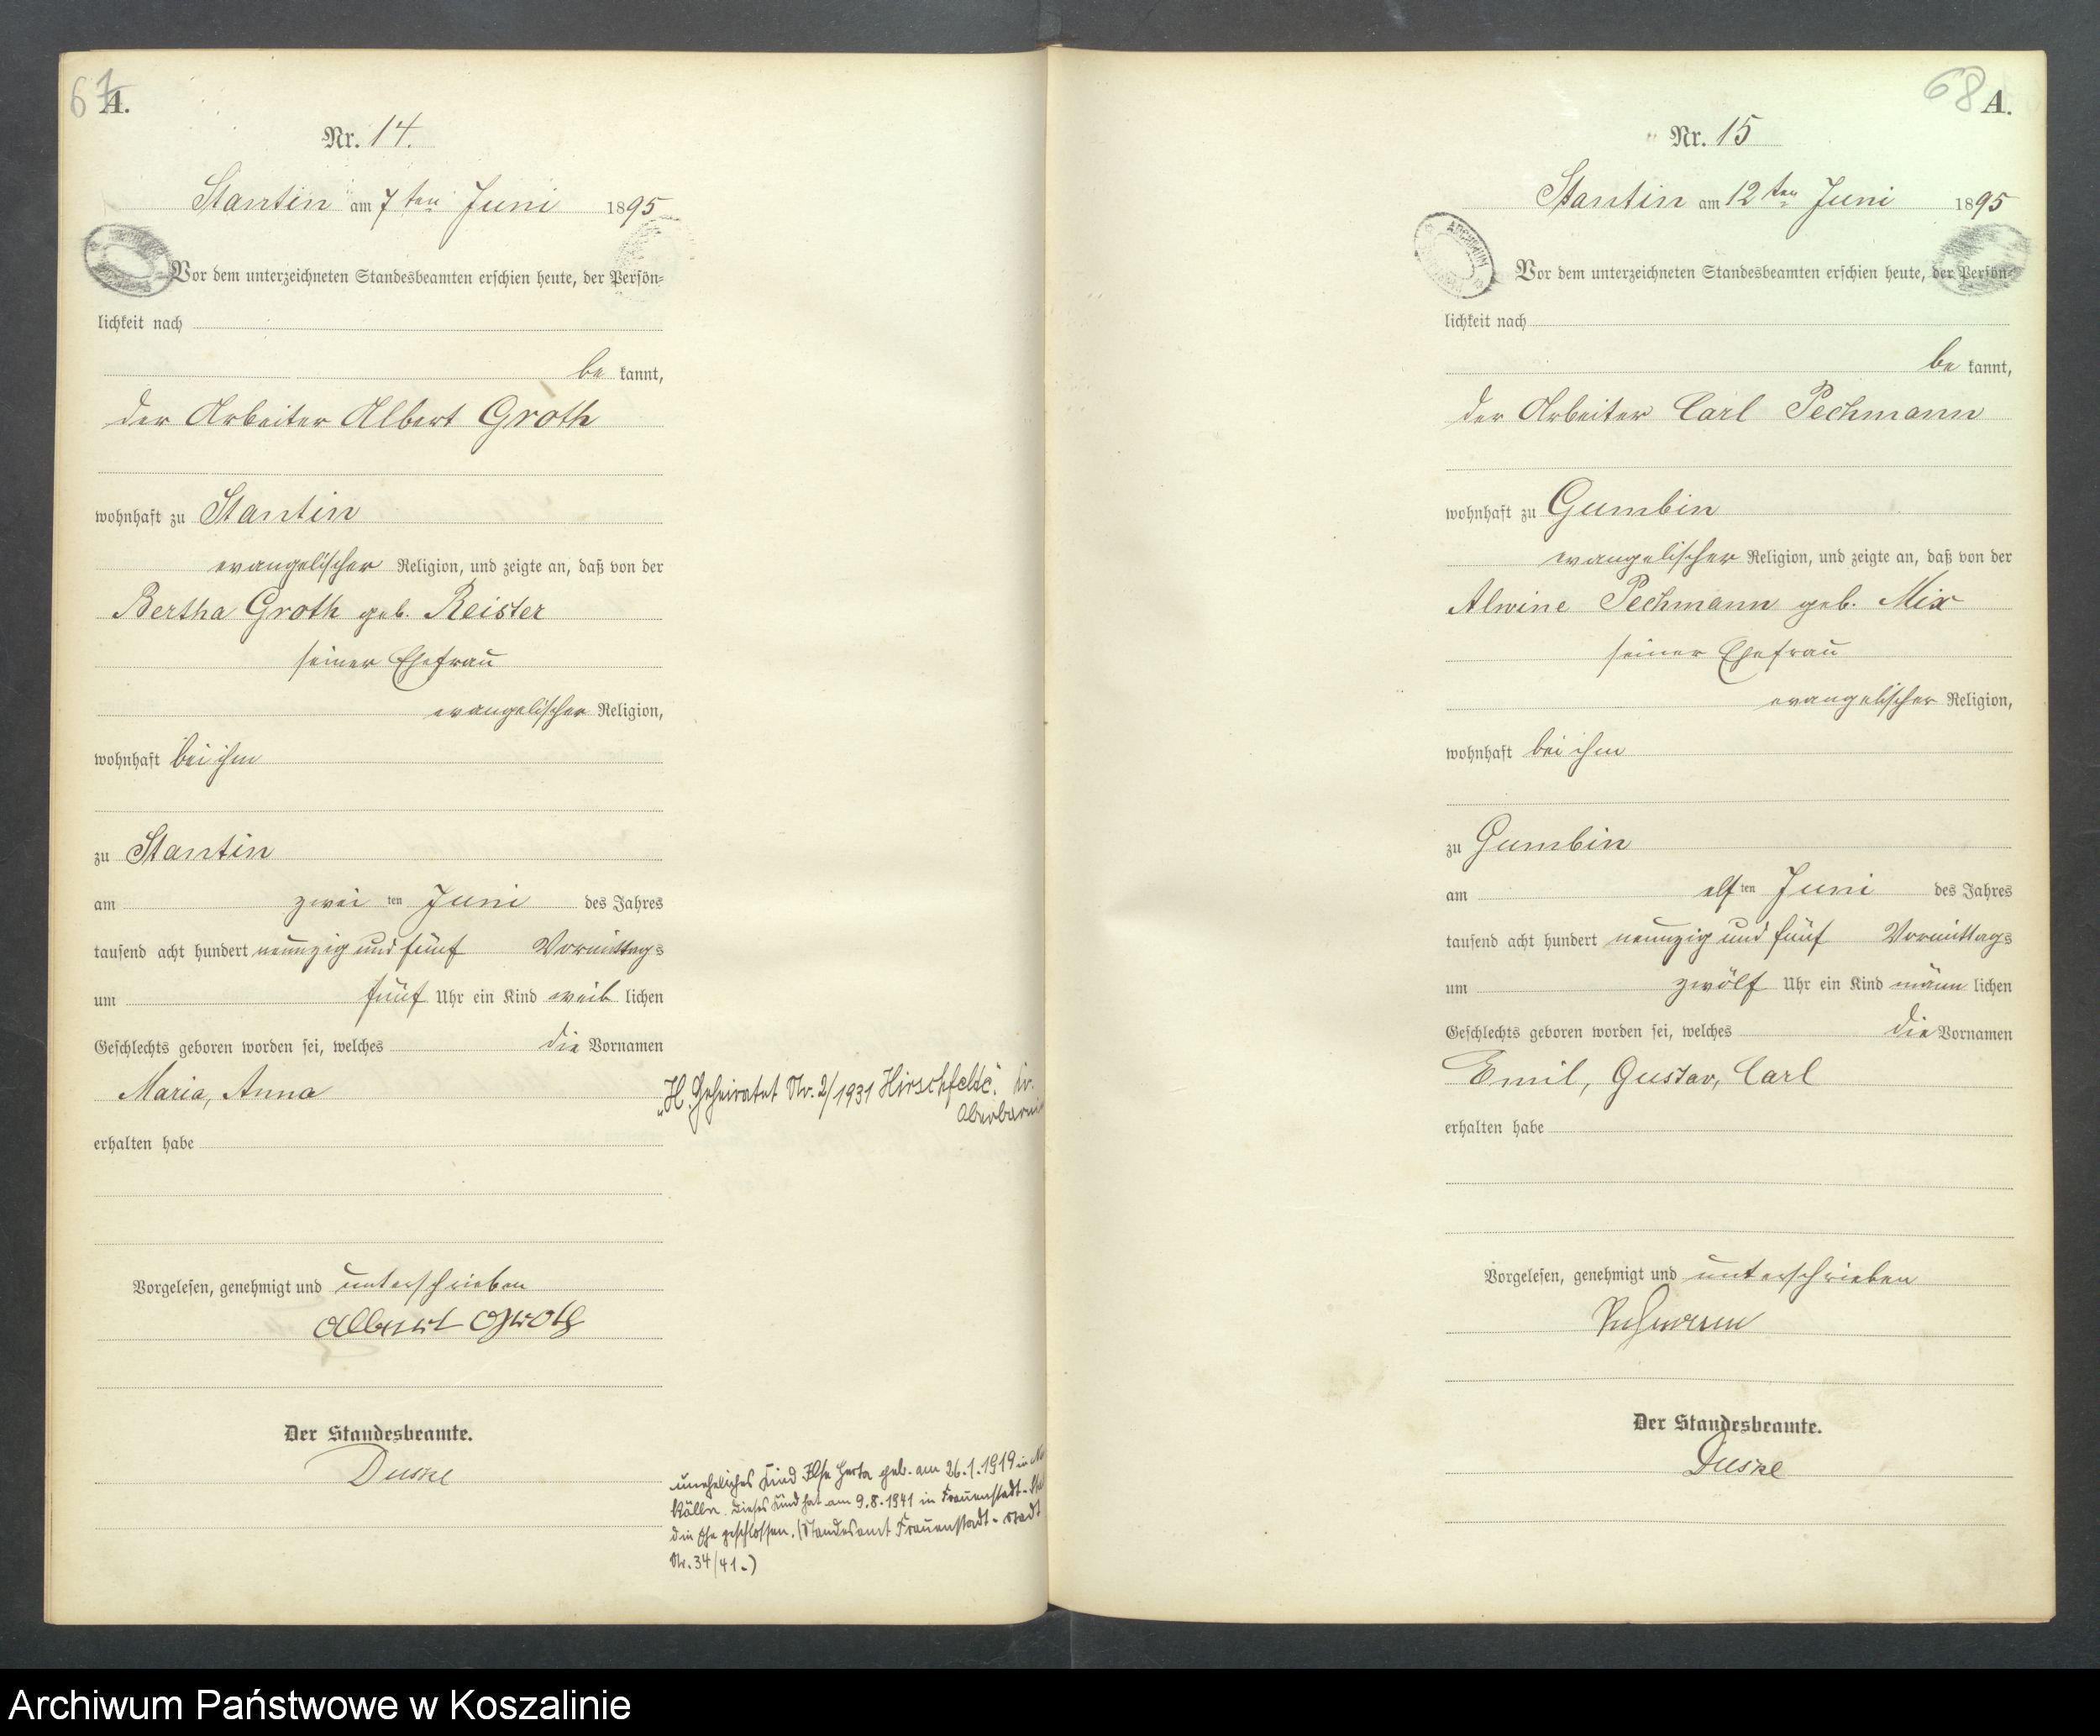 67
A.
Nr. 14.
Stantin am 7ten Juni 1895
Vor dem unterzeichneten Standesbeamten erschien heute, der Persön-
lichkeit nach
be kannt,
der Arbeiter Albert Groth
wohnhaft zu Stantin
evangelischer Religion, und zeigte an, daß von der
Bertha Groth geb. Reister
seiner Ehefrau
evangelischer Religion,
wohnhaft bei ihm
zu Stantin
am zwei ten Juni des Jahres
tausend acht hundert neunzig und fünf Vormittags
um fünf Uhr ein Kind weib lichen
Geschlechts geboren worden sei, welches die Vornamen
Maria, Anna
erhalten habe
Vorgelesen, genehmigt und unterschrieben
Albert Groth
Der Standesbeamte.
Duske
„H. Geheiratet Nr. 2/1931 Hirschfelde." Kr.
Oberbarni
uneheliches Kind Ilse Herta geb. am 26.1.1919 in
Kölln. Dieses Kind hat am 9.8.1941 in Frauenstadt-
die Ehe geschlossen. (Standesamt Frauenstadt-Stadt
Nr. 34/41.)
68
A.
Nr. 15
Stantin am 12ten Juni 1895
ARCHIWUM
Vor dem unterzeichneten Standesbeamten erschien heute, der Persön-
lichkeit nach
be kannt,
der Arbeiter Carl Pechmann
wohnhaft zu Gumbin
evangelischer Religion, und zeigte an, daß von der
Alwine Pechmann geb. Mix
seiner Ehefrau
evangelischer Religion,
wohnhaft bei ihm
zu Gumbin
am elf ten Juni des Jahres
tausend acht hundert neunzig und fünf Vormittags
um zwölf Uhr ein Kind männ lichen
Geschlechts geboren worden sei, welches die Vornamen
Emil, Gustav, Carl
erhalten habe
Vorgelesen, genehmigt und unterschrieben
Der Standesbeamte.
Duske
Archiwum Państwowe w Koszalinie